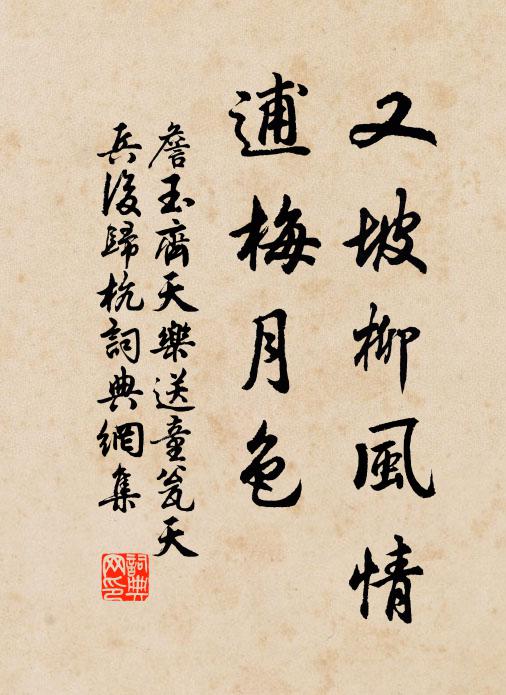 又坡柳風情
逋梅月色
詹玉齊天樂送童瓮天
兵後歸杭詞典網集
詞典网印